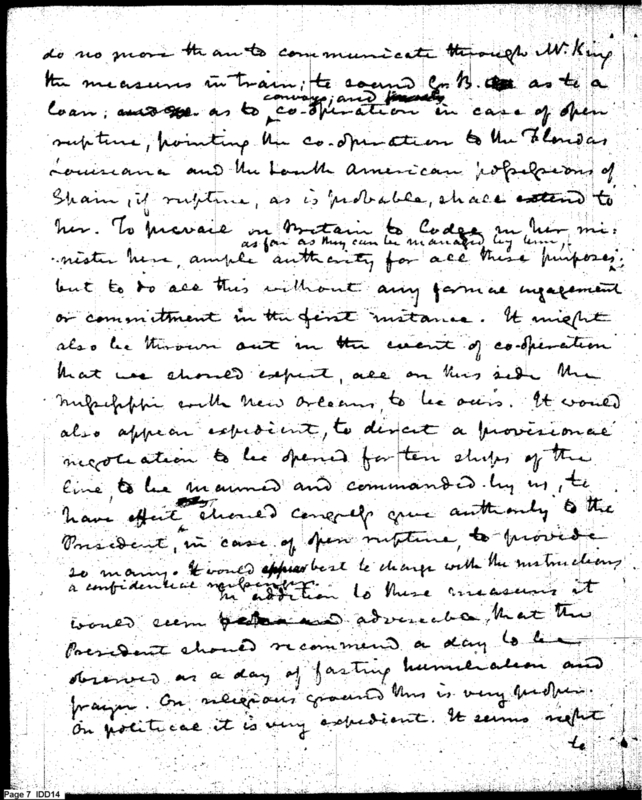 do no more than to communicate through Mr. King
the measures in train; to sound Gr B. as to a
loan; as to convoys; and
co-operation in case of open
rupture, pointing the co-operation to the Floridas
Louisiana and the South American possessions of
Spain, if rupture, as is probable, shall extend to
her. To prevail on Britain to lodge in her mi-
as far as they can be managed by him,
nister here, ample authority for all these purposes;
but to do all this without any formal engagement
or committment in the first instance. It might
also be thrown out in the event of co-operation
that we should expect, all on this side the
Mississippi with New Orleans, to be ours. It would
also appear expedient, to direct a provisional
negotiation to be opened for ten ships of the
line, to be manned and commanded by us, to
have effect should Congress give authority to the
President, in case of open rupture, to provide
so many. It would best to charge with the instructions
a confidential messenger.
In addition to these measures it
would seem adviseable, that the
President should recommend a day to be
observed as a day of fasting humiliation and
prayer. On religious ground this is very proper.
On political it is very expedient. It seems right
to
Page 7 IDD14